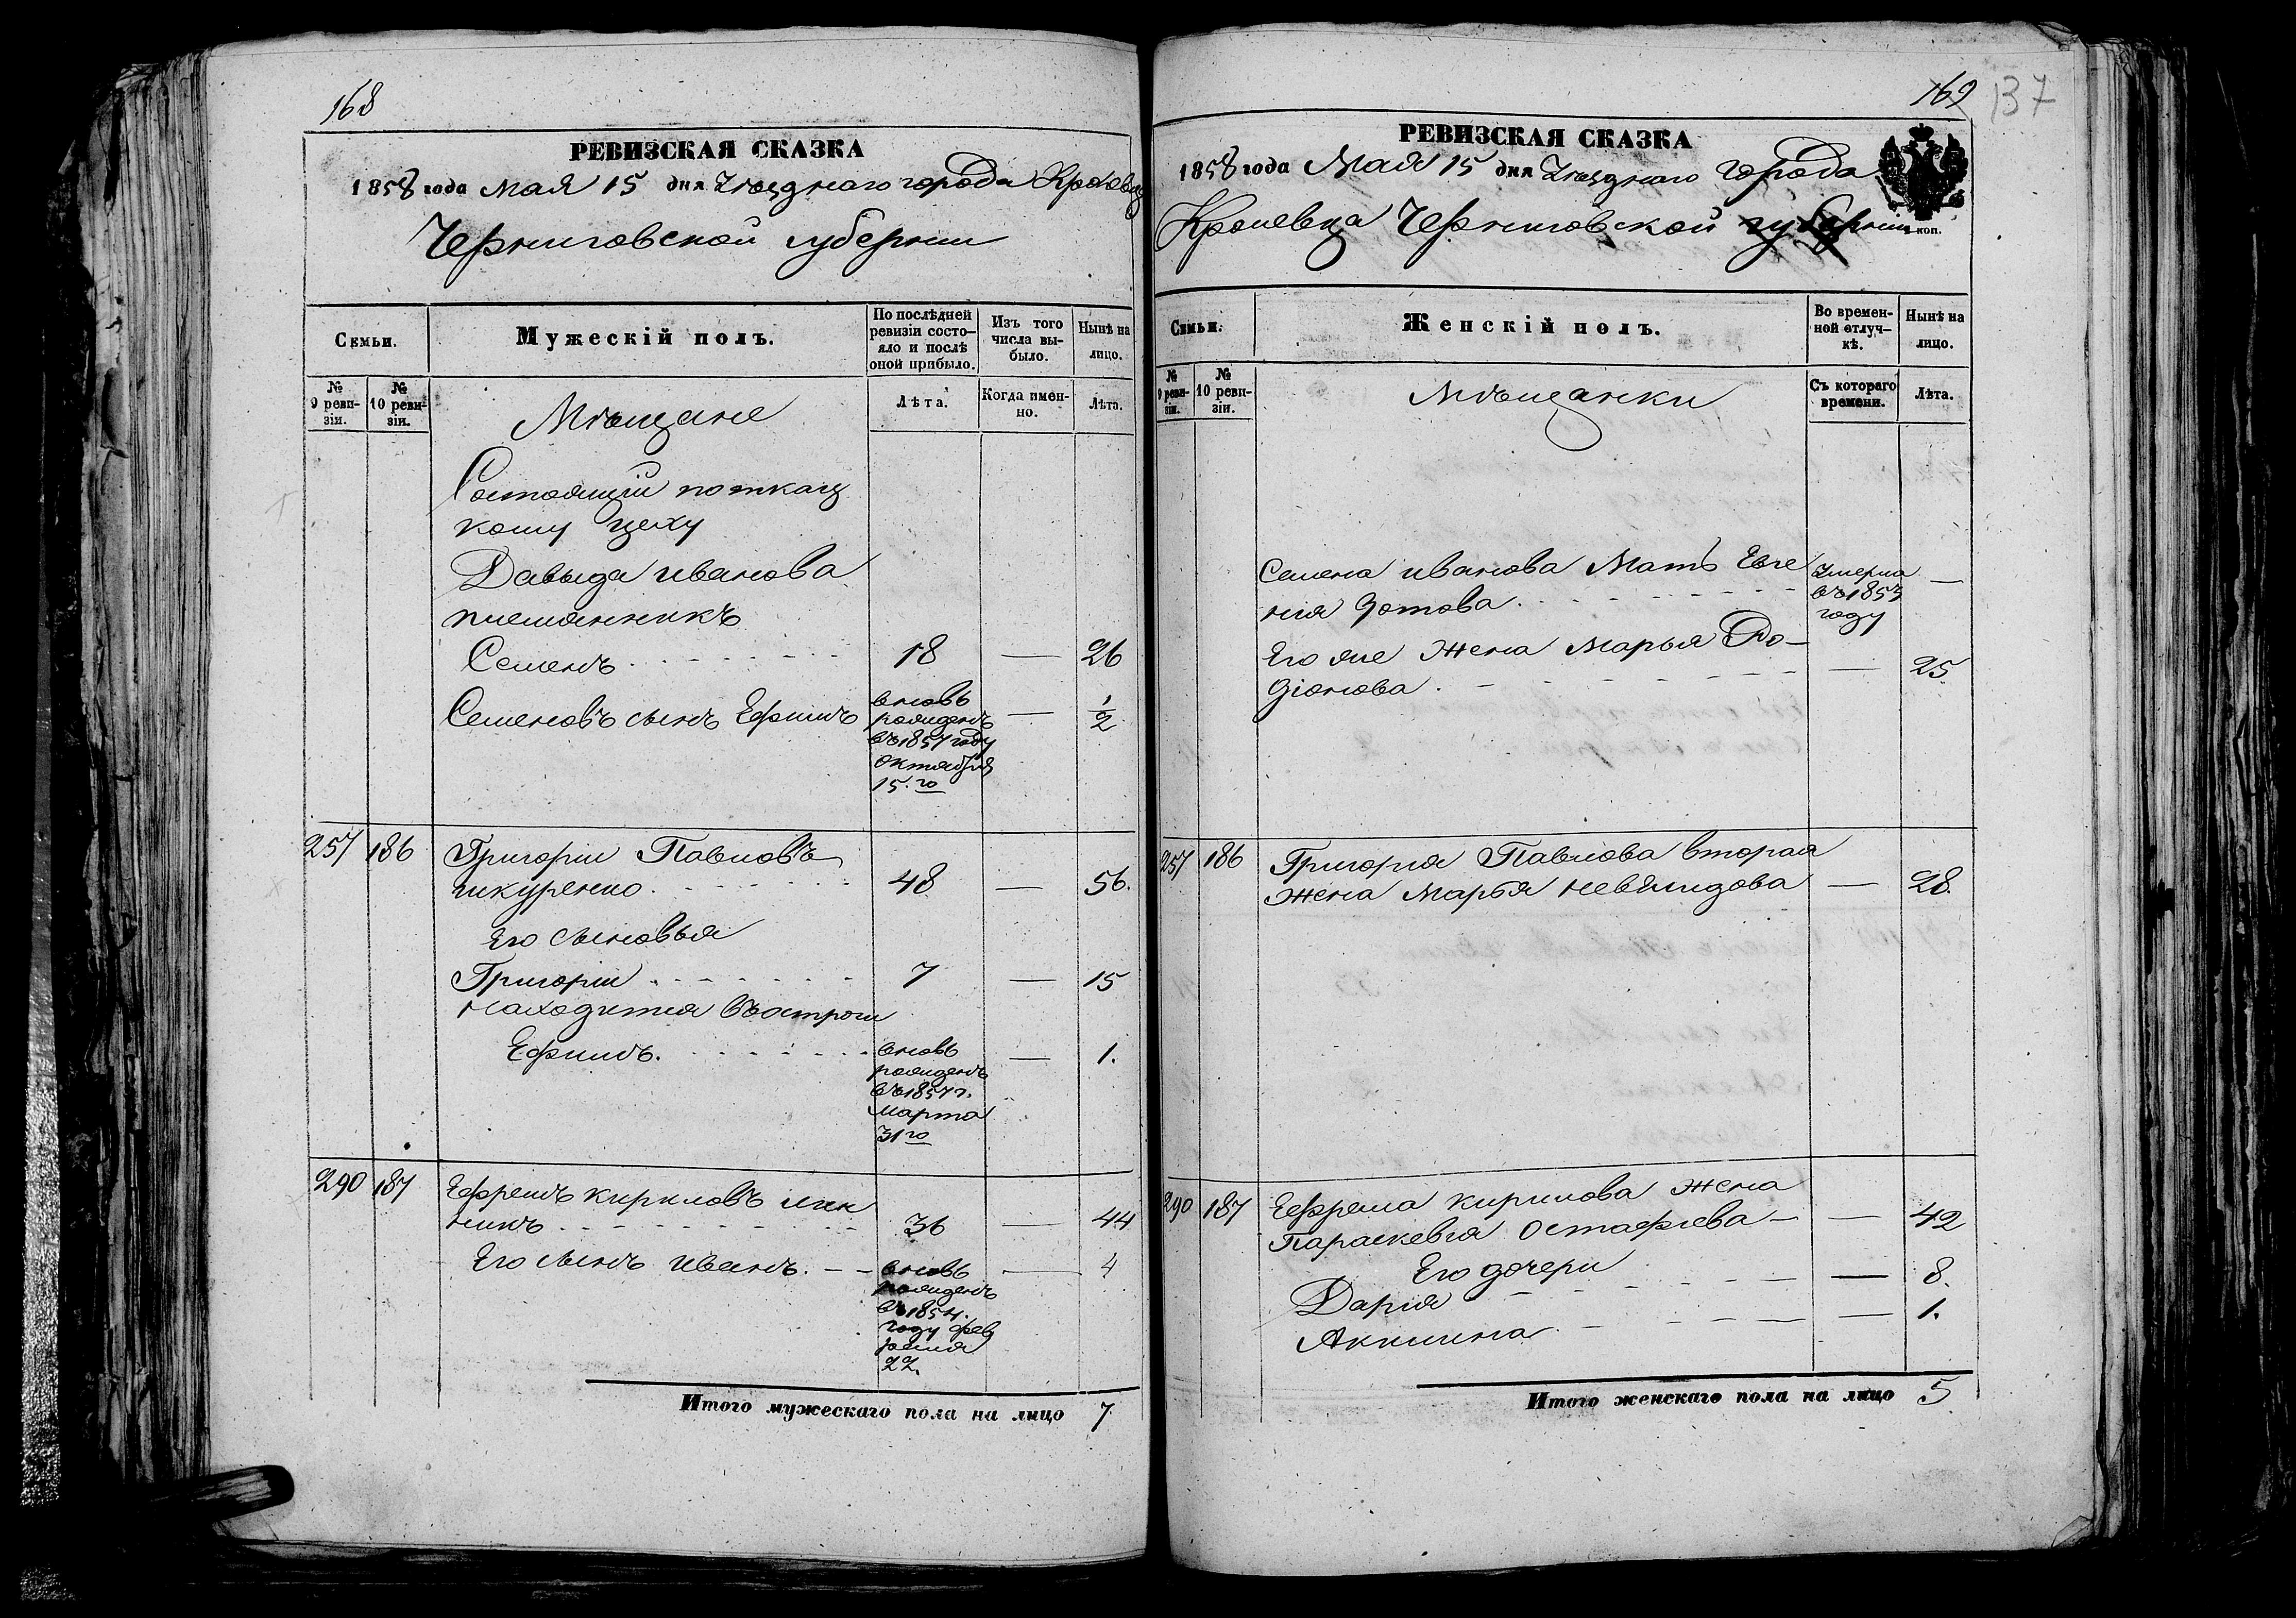 168
РЕВИЗСКАЯ СКАЗКА
1858 года Мая 15 дня Уѣзднаго города Кролевца
Черниговской губернии
Семьи.
Мужескій полъ.
По послѣдней ревизіи состо-
яло и послѣ оной прибыло.
Изъ того числа вы-
было.
Нынѣ на лицо.
№ 9 реви-
зіи.
№ 10 реви-
зіи.
Мѣщане
Лѣта.
Когда имен-
но.
Лѣта.
Состоящии по ткац
кому цеху
Давыда иванова
племянникъ
Семенъ 18 — 26
Семеновъ сынъ Ефимъ
вновь
рожденъ
въ 1857 году
октября
15.го
— 1/2
257 186 Григории Павловъ
шкуренко 48 — 56.
Его сыновья
Григории 7 — 15
находится въ острогѣ
Ефимъ.
вновь
рожденъ
въ 1857 г.
марта
31го
— 1.
290 187 Ефремъ кириловъ лин
никъ 36 — 44
Его сынъ иванъ.
вновь
рожденъ
въ 1854.
году фев
раля
22.
— 4
Итого мужескаго пола на лицо 7
169 137
РЕВИЗСКАЯ СКАЗКА
1858 года Мая 15 дня Уѣзднаго города
Кролевца Черниговской губернии
коп.
Семьи.
Женскій полъ.
Во времен-
ной отлуч-
кѣ.
Нынѣ на лицо.
№ 9 реви-
зіи.
№ 10 реви-
зіи.
Мѣщанки
Съ котораго времени.
Лѣта.
Семена иванова Мать Евге
ния Зотова.
Умерла
въ 1853
году
—
Его же жена Марья Ро-
діонова — 25
257 186 Григория Павлова вторая
жена Марья — 28.
290 187 Ефрема кирилова жена
Параскевия Остафіева — 42
Его дочери
Дария — 8.
Акилина — 1.
Итого женскаго пола на лицо 5